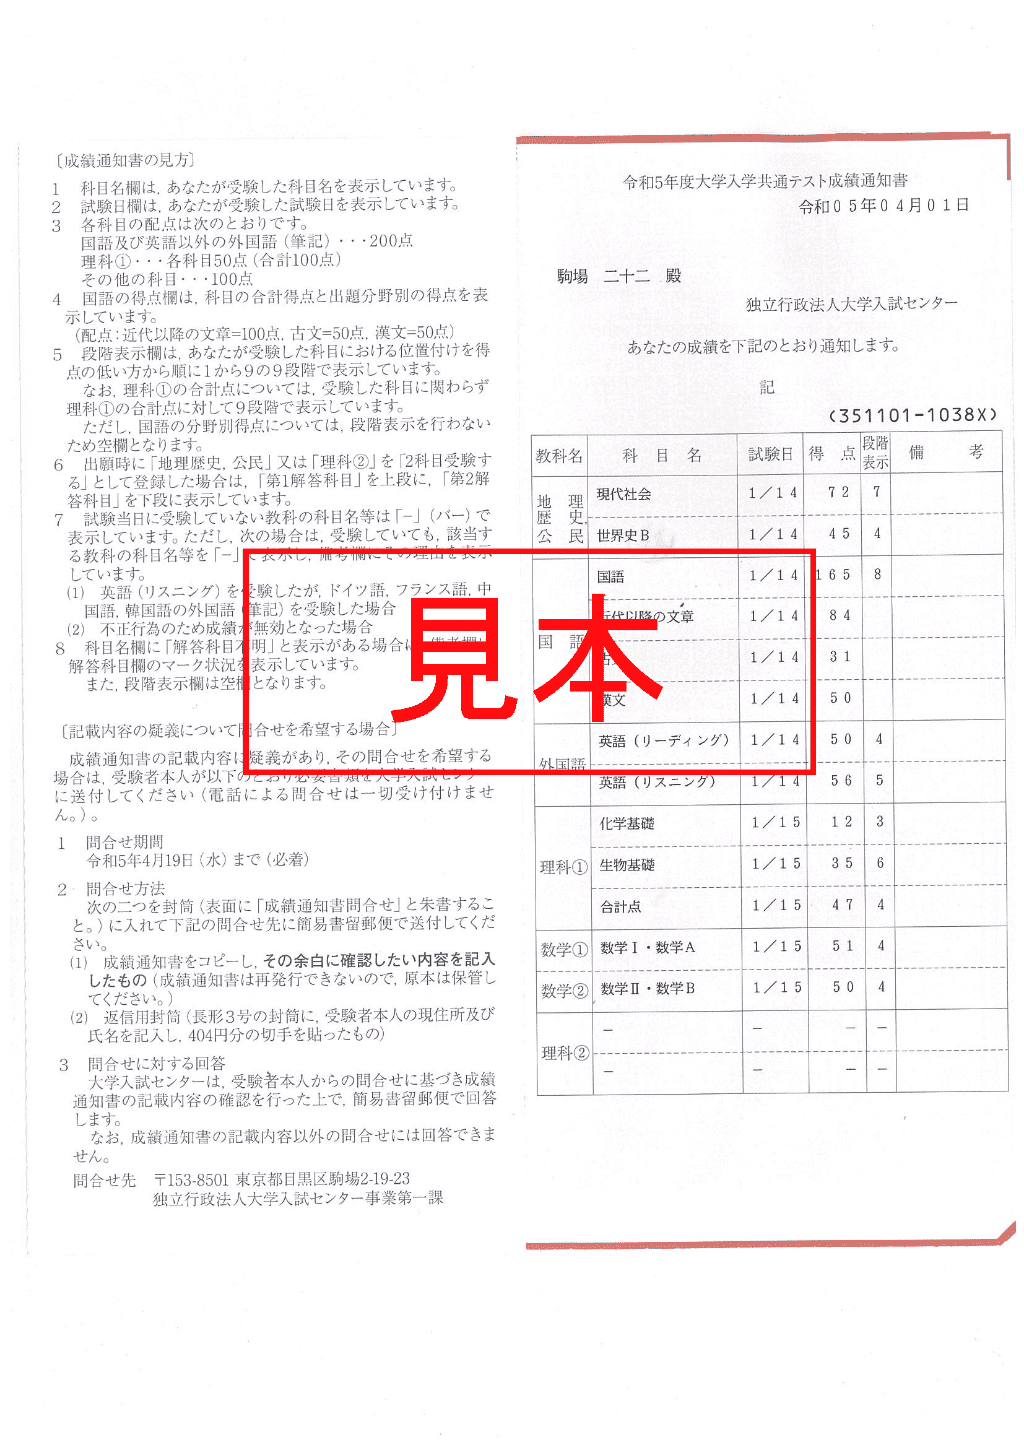 〔成績通知書の見方〕
1 科目名欄は，あなたが受験した科目名を表示しています。
2 試験日欄は，あなたが受験した試験日を表示しています。
3 各科目の配点は次のとおりです。
国語及び英語以外の外国語（筆記）・・・200点
理科①・・・各科目50点（合計100点）
その他の科目・・・100点
4 国語の得点欄は，科目の合計得点と出題分野別の得点を表
示しています。
（配点：近代以降の文章=100点，古文=50点，漢文=50点）
5 段階表示欄は，あなたが受験した科目における位置付けを得
点の低い方から順に1から9の9段階で表示しています。
なお，理科①の合計点については，受験した科目に関わらず
理科①の合計点に対して9段階で表示しています。
ただし，国語の分野別得点については，段階表示を行わない
ため空欄となります。
6 出願時に「地理歴史，公民」又は「理科②」を「2科目受験す
る」として登録した場合は，「第1解答科目」を上段に，「第2解
答科目」を下段に表示しています。
7 試験当日に受験していない教科の科目名等は「−」（バー）で
表示しています。ただし，次の場合は，受験していても，該当す
る教科の科目名等を「−」で表示し，備考欄にその理由を表示
しています。
(1) 英語（リスニング）を受験したが，ドイツ語，フランス語，中
国語，韓国語の外国語（筆記）を受験した場合
(2) 不正行為のため成績が無効となった場合
8 科目名欄に「解答科目不明」と表示がある場合は，備考欄に
解答科目欄のマーク状況を表示しています。
また，段階表示欄は空欄となります。
〔記載内容の疑義について問合せを希望する場合〕
成績通知書の記載内容に疑義があり，その問合せを希望する
場合は，受験者本人が以下のとおり必要書類を大学入試センター
に送付してください（電話による問合せは一切受け付けませ
ん。）。
1 問合せ期間
令和5年4月19日（水）まで（必着）
2 問合せ方法
次の二つを封筒（表面に「成績通知書問合せ」と朱書するこ
と。）に入れて下記の問合せ先に簡易書留郵便で送付してくだ
さい。
(1) 成績通知書をコピーし，その余白に確認したい内容を記入
したもの（成績通知書は再発行できないので，原本は保管し
てください。）
(2) 返信用封筒（長形3号の封筒に，受験者本人の現住所及び
氏名を記入し，404円分の切手を貼ったもの）
3 問合せに対する回答
大学入試センターは，受験者本人からの問合せに基づき成績
通知書の記載内容の確認を行った上で，簡易書留郵便で回答
します。
なお，成績通知書の記載内容以外の問合せには回答できま
せん。
問合せ先 〒153-8501 東京都目黒区駒場2-19-23
独立行政法人大学入試センター事業第一課
令和5年度大学入学共通テスト成績通知書
令和05年04月01日
駒場 二十二 殿
独立行政法人大学入試センター
あなたの成績を下記のとおり通知します。
記
(351101-1038X)
教科名 科目名 試験日 得点 段階表示 備考
地理歴史，公民 現代社会 1／14 72 7
世界史B 1／14 45 4
国語 国語 1／14 165 8
近代以降の文章 1／14 84
古文 1／14 31
漢文 1／14 50
外国語 英語（リーディング） 1／14 50 4
英語（リスニング） 1／14 56 5
理科① 化学基礎 1／15 12 3
生物基礎 1／15 35 6
合計点 1／15 47 4
数学① 数学Ⅰ・数学A 1／15 51 4
数学② 数学Ⅱ・数学B 1／15 50 4
理科② − − − −
− − − −
見本